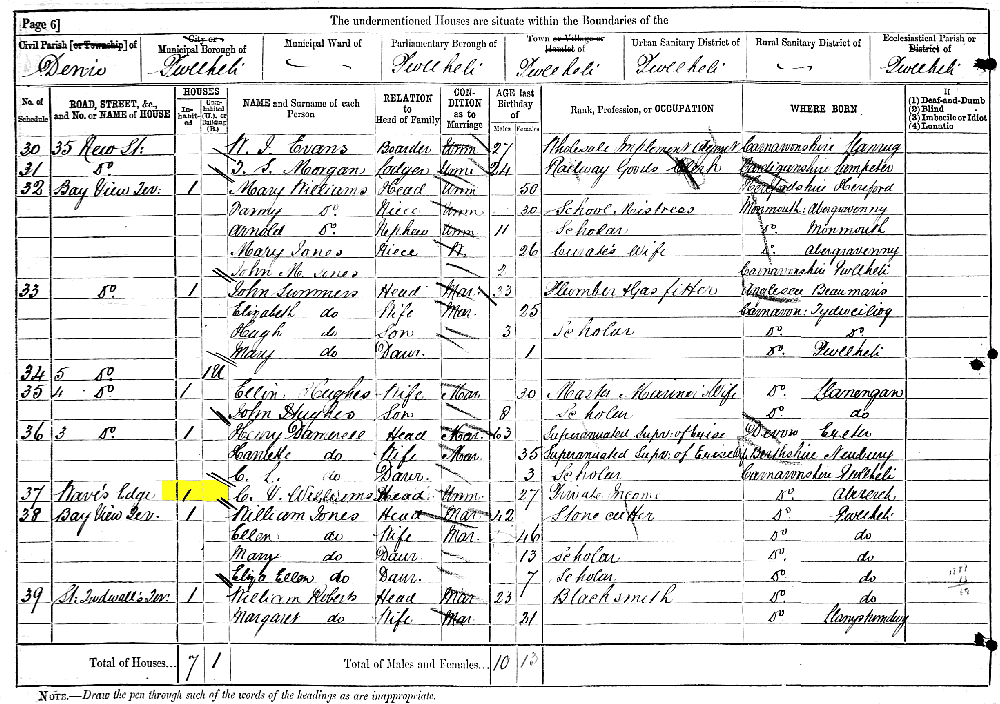 Page 6]
The undermentioned Houses are situate within the Boundaries of the
Civil Parish [or Township] of
City or
Municipal Borough of
Municipal Ward of
Parliamentary Borough of
Town or Village or
Hamlet of
Urban Sanitary District of
Rural Sanitary District of
Ecclesiastical Parish or
District of
Denio Pwllheli Pwllheli Pwllheli Pwllheli Pwllheli
No. of Schedule
ROAD, STREET, &c., and No. or NAME of HOUSE
HOUSES
In-habit-ed
NAME and Surname of each Person
RELATION to Head of Family
CON-DITION as to Marriage
AGE last Birthday of
Males Females
Rank, Profession, or OCCUPATION
WHERE BORN
If
(1) Deaf-and-Dumb
(2) Blind
(3) Imbecile or Idiot
(4) Lunatic
30 35 New St. Evans Boarder Unm 27 Wholesale Implement Carnarvonshire Llanrug
31 Do. Morgan Lodger Unm 24 Railway Goods Clerk Cardiganshire Lampeter
32 Bay View Ter. 1 Mary Williams Head Unm 50 Herefordshire Hereford
Do. Niece Unm 30 School Mistress Monmouth: Abergavenny
Arnold Do. Nephew Unm 11 Scholar Do. Monmouth
Mary Jones Niece 26 Curate's Wife Do. Abergavenny
John M. Jones 2 Carnarvonshire Pwllheli
33 Do. 1 John Summers Head Mar. 33 Plumber & Gas fitter Anglesea Beaumaris
Elizabeth do Wife Mar. 25 Carnarvon:
Hugh do Son 3 Scholar Do. Do.
Mary do Daur. 1 Do. Pwllheli
34 5 Do. 1U
35 4 Do. 1 Ellin Hughes Wife Mar. 30 Master Mariner's Wife Do. Llanengan
John Hughes Son 8 Scholar Do. do
36 3 Do. 1 Henry Head Mar. 63 Superanuated Superv. of Devon Exeter
do Wife Mar. 35 Superanuated Superv. of Berkshire Newbury
C. L. do Daur. 3 Scholar Carnarvonshire Pwllheli
37 Wave's Edge 1 C. V. Williams Head Unm. 27 Private Income Do. Abererch
38 Bay View Ter. 1 William Jones Head Mar. 42 Stone cutter Do. Pwllheli
Ellen do Wife Mar. 46 Do. do
Mary do Daur. 13 scholar Do. do
Eliza Ellen do Daur. 7 Scholar Do. do
39 St. Tudwall's Ter. 1 William Roberts Head Mar 23 Blacksmith Do. do
Margaret do Wife Mar 21 Do.
Total of Houses... 7 1 Total of Males and Females... 10 13
NOTE.—Draw the pen through such of the words of the headings as are inappropriate.